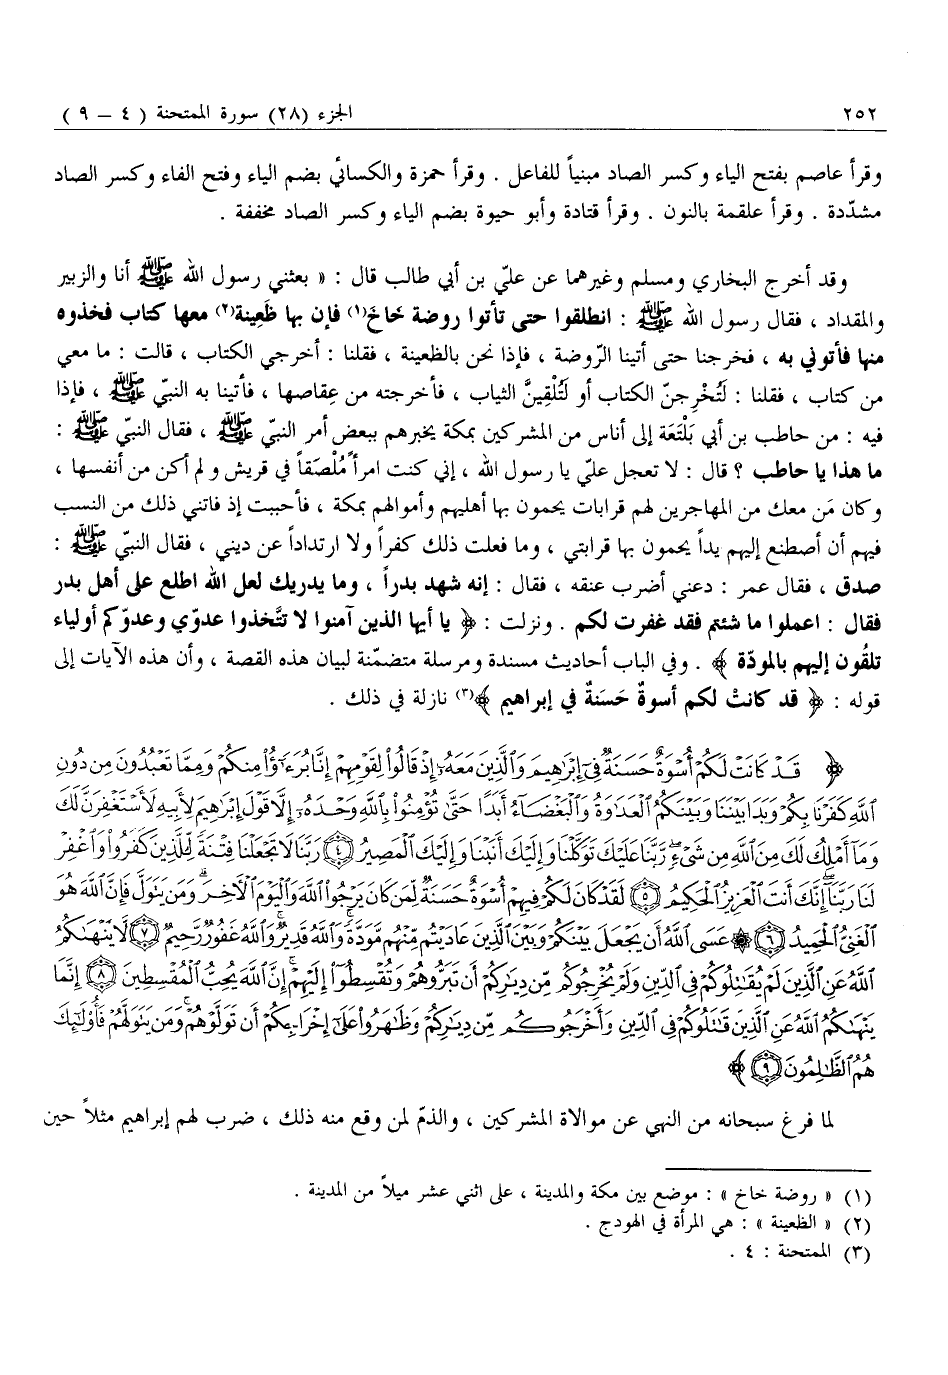 ٢٥٢ الجزء (٢٨) سورة الممتحنة ( ٤ – ٩ )
وقرأ عاصم بفتح الياء وكسر الصاد مبنياً للفاعل . وقرأ حمزة والكسائي بضم الياء وفتح الفاء وكسر الصاد
مشدّدة . وقرأ علقمة بالنون . وقرأ قتادة وأبو حيوة بضم الياء وكسر الصاد مخففة .
وقد أخرج البخاري ومسلم وغيرهما عن عليّ بن أبي طالب قال : « بعثني رسول الله ﷺ أنا والزبير
والمقداد ، فقال رسول الله ﷺ : انطلقوا حتى تأتوا روضة خَاخَ(١) فإن بها ظَعِينة(٢) معها كتاب فخذوه
منها فأتوني به ، فخرجنا حتى أتينا الرّوضة ، فإذا نحن بالظعينة ، فقلنا : أخرجي الكتاب ، قالت : ما معي
من كتاب ، فقلنا : لَتُخْرِجنّ الكتاب أو لَتُلْقِينَّ الثياب ، فأخرجته من عِقاصها ، فأتينا به النبيّ ﷺ ، فإذا
فيه : من حاطب بن أبي بَلْتَعَة إلى أناس من المشركين بمكة يخبرهم ببعض أمر النبيّ ﷺ ، فقال النبيّ ﷺ :
ما هذا يا حاطب ؟ قال : لا تعجل عليّ يا رسول الله ، إني كنت امرأً مُلْصَقاً في قريش و لم أكن من أنفسها ،
وكان مَن معك من المهاجرين لهم قرابات يحمون بها أهليهم وأموالهم بمكة ، فأحببت إذ فاتني ذلك من النسب
فيهم أن أصطنع إليهم يداً يحمون بها قرابتي ، وما فعلت ذلك كفراً ولا ارتداداً عن ديني ، فقال النبيّ ﷺ :
صدق ، فقال عمر : دعني أضرب عنقه ، فقال : إنه شهد بدراً ، وما يدريك لعل الله اطلع على أهل بدر
فقال : اعملوا ما شئتم فقد غفرت لكم . ونزلت : ﴿ يا أيها الذين آمنوا لا تتَّخذوا عدوّي وعدوّكم أولياء
تلقُون إليهم بالمودّة ﴾ . وفي الباب أحاديث مسندة ومرسلة متضمّنة لبيان هذه القصة ، وأن هذه الآيات إلى
قوله : ﴿ قد كانتْ لكم أسوةٌ حَسَنةٌ في إبراهيم ﴾(٣) نازلة في ذلك .
﴿ قَدْ كَانَتْ لَكُمْ أُسْوَةٌ حَسَنَةٌ فِىٓ إِبْرَٰهِيمَ وَٱلَّذِينَ مَعَهُۥٓ إِذْ قَالُوا۟ لِقَوْمِهِمْ إِنَّا بُرَءَٰٓؤُا۟ مِنكُمْ وَمِمَّا تَعْبُدُونَ مِن دُونِ
ٱللَّهِ كَفَرْنَا بِكُمْ وَبَدَا بَيْنَنَا وَبَيْنَكُمُ ٱلْعَدَٰوَةُ وَٱلْبَغْضَآءُ أَبَدًا حَتَّىٰ تُؤْمِنُوا۟ بِٱللَّهِ وَحْدَهُۥٓ إِلَّا قَوْلَ إِبْرَٰهِيمَ لِأَبِيهِ لَأَسْتَغْفِرَنَّ لَكَ
وَمَآ أَمْلِكُ لَكَ مِنَ ٱللَّهِ مِن شَىْءٍ ۖ رَّبَّنَا عَلَيْكَ تَوَكَّلْنَا وَإِلَيْكَ أَنَبْنَا وَإِلَيْكَ ٱلْمَصِيرُ ٤ رَبَّنَا لَا تَجْعَلْنَا فِتْنَةً لِّلَّذِينَ كَفَرُوا۟ وَٱغْفِرْ
لَنَا رَبَّنَآ ۖ إِنَّكَ أَنتَ ٱلْعَزِيزُ ٱلْحَكِيمُ ٥ لَقَدْ كَانَ لَكُمْ فِيهِمْ أُسْوَةٌ حَسَنَةٌ لِّمَن كَانَ يَرْجُوا۟ ٱللَّهَ وَٱلْيَوْمَ ٱلْـَٔاخِرَ ۚ وَمَن يَتَوَلَّ فَإِنَّ ٱللَّهَ هُوَ
ٱلْغَنِىُّ ٱلْحَمِيدُ ٦ ۞ عَسَى ٱللَّهُ أَن يَجْعَلَ بَيْنَكُمْ وَبَيْنَ ٱلَّذِينَ عَادَيْتُم مِّنْهُم مَّوَدَّةً ۚ وَٱللَّهُ قَدِيرٌ ۚ وَٱللَّهُ غَفُورٌ رَّحِيمٌ ٧ لَّا يَنْهَىٰكُمُ
ٱللَّهُ عَنِ ٱلَّذِينَ لَمْ يُقَٰتِلُوكُمْ فِى ٱلدِّينِ وَلَمْ يُخْرِجُوكُم مِّن دِيَٰرِكُمْ أَن تَبَرُّوهُمْ وَتُقْسِطُوٓا۟ إِلَيْهِمْ ۚ إِنَّ ٱللَّهَ يُحِبُّ ٱلْمُقْسِطِينَ ٨ إِنَّمَا
يَنْهَىٰكُمُ ٱللَّهُ عَنِ ٱلَّذِينَ قَٰتَلُوكُمْ فِى ٱلدِّينِ وَأَخْرَجُوكُم مِّن دِيَٰرِكُمْ وَظَٰهَرُوا۟ عَلَىٰٓ إِخْرَاجِكُمْ أَن تَوَلَّوْهُمْ ۚ وَمَن يَتَوَلَّهُمْ فَأُو۟لَٰٓئِكَ
هُمُ ٱلظَّٰلِمُونَ ٩ ﴾
لما فرغ سبحانه من النهي عن موالاة المشركين ، والذمّ لمن وقع منه ذلك ، ضرب لهم إبراهيم مثلاً حين
(١) « روضة خاخ » : موضع بين مكة والمدينة ، على اثني عشر ميلاً من المدينة .
(٢) « الظعينة » : هي المرأة في الهودج .
(٣) الممتحنة : ٤ .